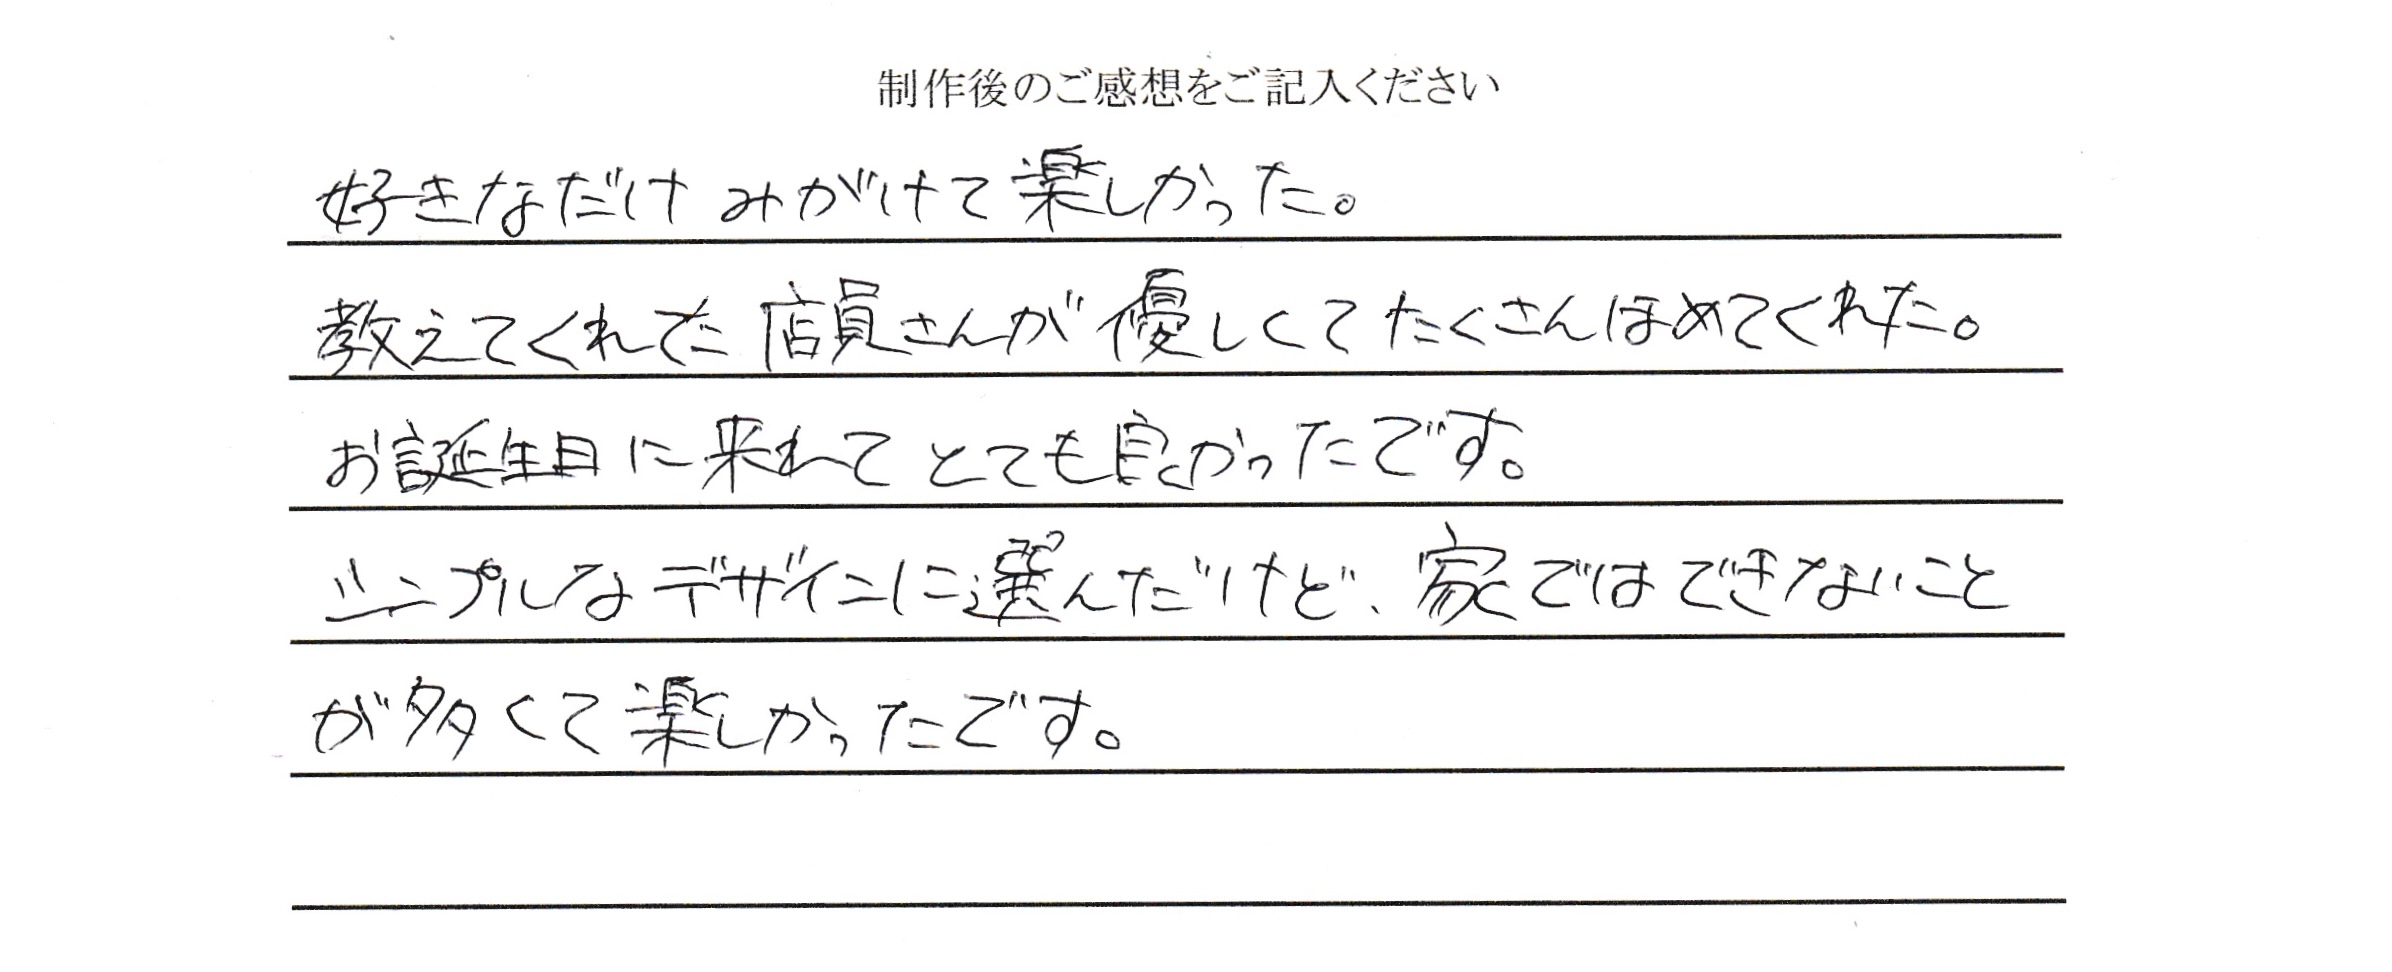 制作後のご感想をご記入ください
好きなだけみがけて楽しかった。
教えてくれてた店員さんが優しくてたくさんほめてくれた。
お誕生日に来れてとても良かったです。
シンプルなデザインに選んだけど、家ではできないこと
が多くて楽しかったです。